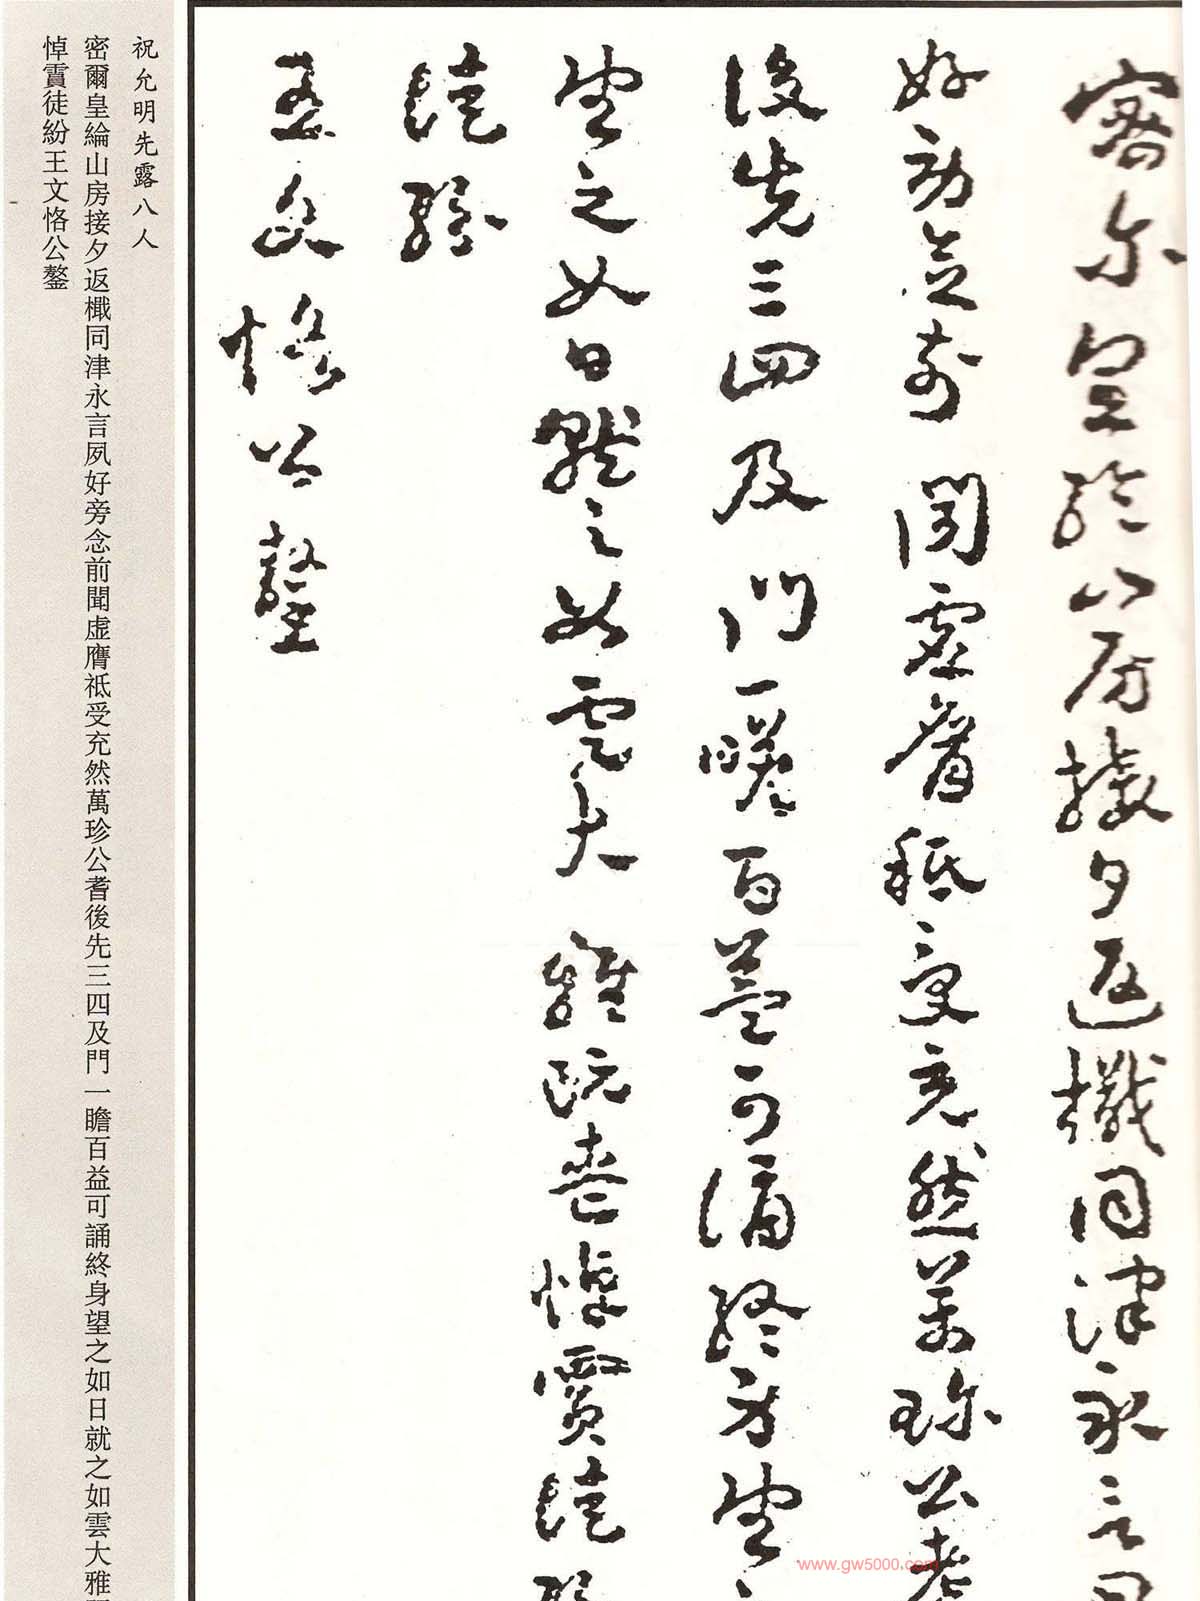 密爾皇綸山房接夕返檝同津永言
好旁念前聞虛膺祗受充然萬珍公耆
後先三四及門一瞻百益可誦終身望
望之如日就之如雲大雅既喪悼霣徒紛
徒紛
王文恪公鏊
祝允明先露八人
密爾皇綸山房接夕返檝同津永言夙好旁念前聞虛膺祗受充然萬珍公耆後先三四及門一瞻百益可誦終身望之如日就之如雲大雅
悼霣徒紛王文恪公鏊
www.gw5000.com